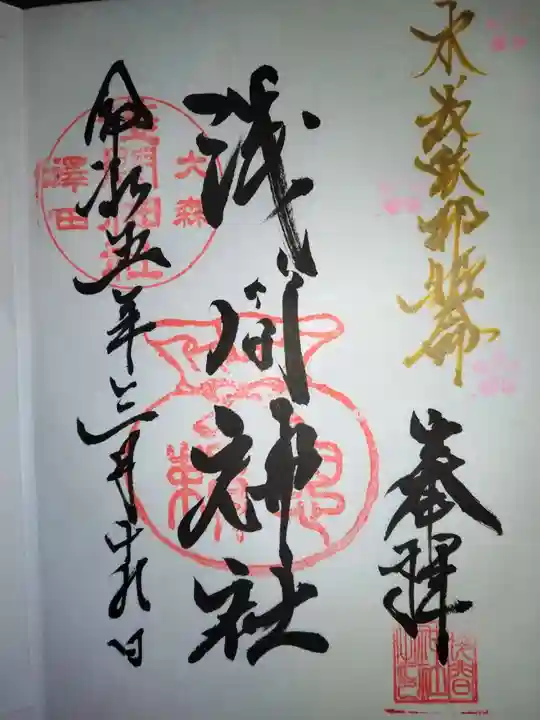 木花咲耶姫命
奉拝
浅間神社
令和五年三月十九日
大森
澤田
浅間神社